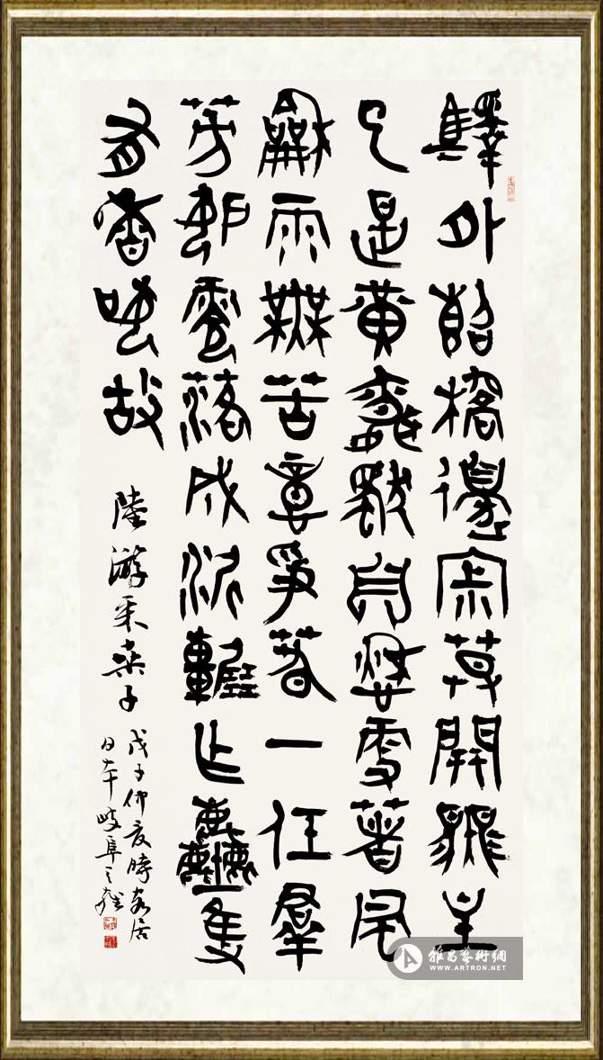 驛外斷橋邊寂莫開無主
已是黃昏獨自愁更著風
龢雨無苦意爭春一任群
芳妒零落成泥輾作塵隻
有香如故
陸游采桑子
戊子仲夏時客居
日本岐阜
雅昌藝術網
WWW.ARTRON.NET